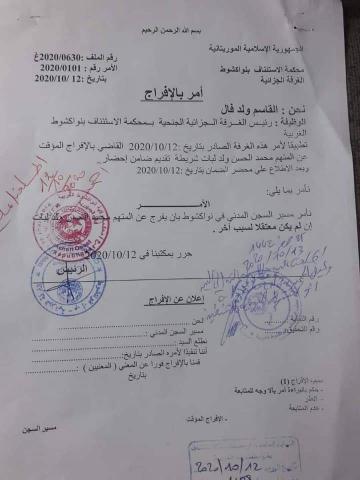 بسم الله الرحمن الرحيم
الجمهورية الإسلامية الموريتانية
محكمة الاستئناف بنواكشوط
الغرفة الجزائية
رقم الملف: 2020/0630غ
الأمر رقم : 2020/0101
بتاريخ : 12 /2020/10
أمر بالإفراج
نحن : القاسم ولد فال
الوظيفة : رئيس الغرفة الجزائية الجنحية بمحكمة الاستئناف بنواكشوط
الغربية
تطبيقا لأمر هذه الغرفة الصادر بتاريخ :2020/10/12 القاضي بالإفراج المؤقت
عن المتهم محمد الحسن ولد لبات شريطة تقديم ضامن إحضار
وبعد الاطلاع على محضر الضمان بتاريخ 2020/10/12
نأمر بما يلي:
الأمـــــر
نأمر مسير السجن المدني في نواكشوط بأن يفرج عن المتهم محمد ولد لبات
إن لم يكن معتقلا لسبب آخر .
حرر بمكتبنا في 2020/10/12
الرئيس
إعلان عن الإفراج
نحن :
مسير السجن المدني :
نطلع السيد :
أننا تنفيذا لأمره الصادر بتاريخ:
قمنا بالإفراج فورا عن المعني ( المعنيين )
بتاريخ
رقم النيابة
رقم التحقيق
الإفراج (1)
- حكم بالبراءة أمر بألا وجه للمتابعة
- عدم المتابعة
- الإفراج المؤقت
مسير السجن
2020/10/13
2020/10/12